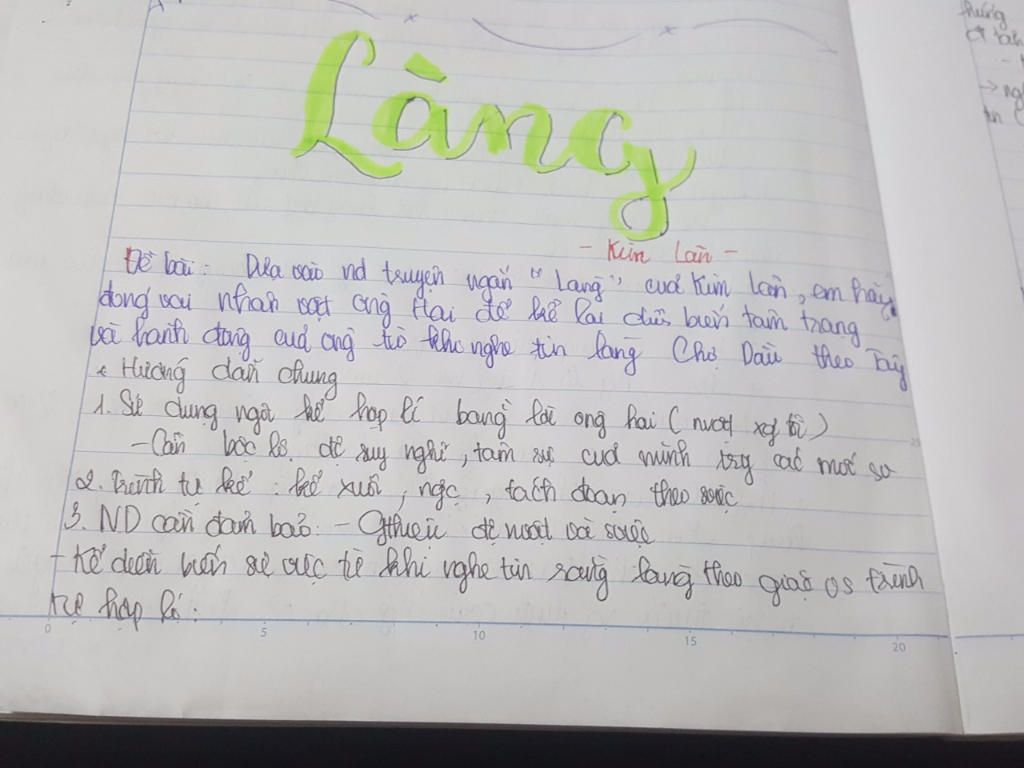 Làng
- Kim Lân -
Đề bài: Dựa vào nd truyện ngắn "Làng" của Kim Lân, em hãy
đóng vai nhân vật ông Hai để kể lại diễn biến tâm trạng
và hành động của ông từ khi nghe tin làng Chợ Dầu theo Tây
* Hướng dẫn chung
1. Sử dụng ngôi kể hợp lí bằng lời ông hai ( xg tôi )
- Cần bộc lộ để suy nghĩ, tâm sự của mình các
2. Trình tự kể: kể xuôi, ngc, tách đoạn theo
3. ND cần đảm bảo: - Gthiệu
- Kể diễn biến sự việc từ khi nghe tin làng theo giặc trình
tự hợp lí.
0 5 10 15 20
hướng
→